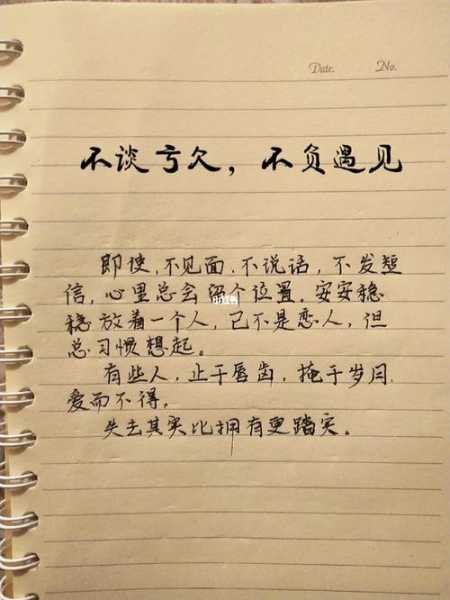 Date. No.
不谈亏欠，不负遇见
即使，不见面，不说话，不发短
信，心里总会留个位置，安安稳
稳放着一个人，已不是恋人，但
总习惯想起。
有些人，止于唇齿，掩于岁月，
爱而不得。
失去其实比拥有更踏实。